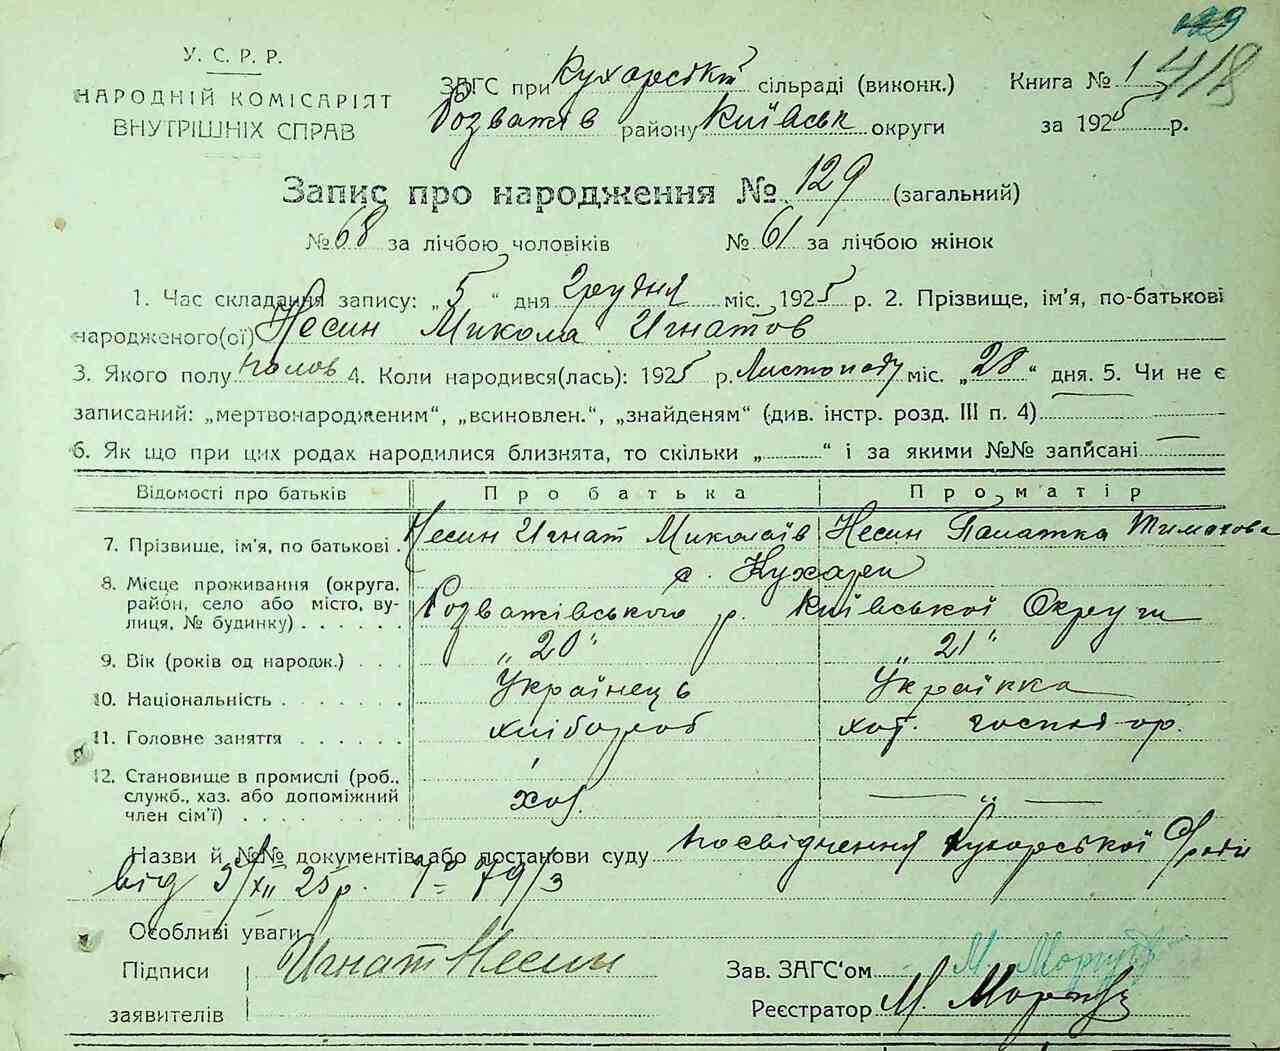 129
У. С. Р. Р.
НАРОДНІЙ КОМІСАРІЯТ
ВНУТРІШНІХ СПРАВ
ЗАГС при Кухарській сільраді (виконк.) Книга № 1 418
Розважів району Київськ округи за 1925 р.
Запис про народження № 129 (загальний)
№ 68 за лічбою чоловіків № 61 за лічбою жінок
1. Час складання запису: „5“ дня Грудня міс. 1925 р. 2. Прізвище, ім'я, по-батькові
народженого(ої) Несин Микола Игнатов
3. Якого полу чолов 4. Коли народився(лась): 1925 р. Листопаду міс. „28“ дня. 5. Чи не є
записаний: „мертвонародженим“, „всиновлен.“, „знайденям“ (див. інстр. розд. III п. 4)
6. Як що при цих родах народилися близнята, то скільки „ “ і за якими №№ записані
Відомості про батьків Про батька Про матір
7. Прізвище, ім'я, по батькові Несин Игнат Миколаїв Несин Палажка Тимохова
8. Місце проживання (округа, район, село або місто, вулиця, № будинку) с. Кухари
Розважівського р. Київської Округи
9. Вік (років од народж.) „20“ „21“
10. Національність Українець Українка
11. Головне заняття хлібороб хат. господар.
12. Становище в промислі (роб., служб., хаз. або допоміжний член сім'ї) хаз. — „ —
Назви й №№ документів або постанови суду посвідчення Кухарської С/ради
від 5/XII 25 р. № 79/3
Особливі уваги
Підписи заявителів Игнат Несин
Зав. ЗАГС'ом М.
Реєстратор М.